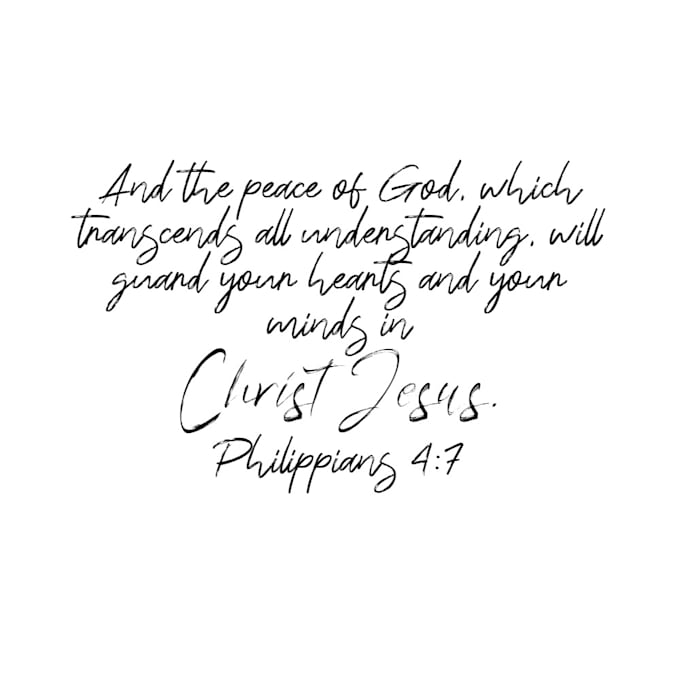 And the peace of God, which
transcends all understanding, will
guard your hearts and your
minds in
Christ Jesus.
Philippians 4:7